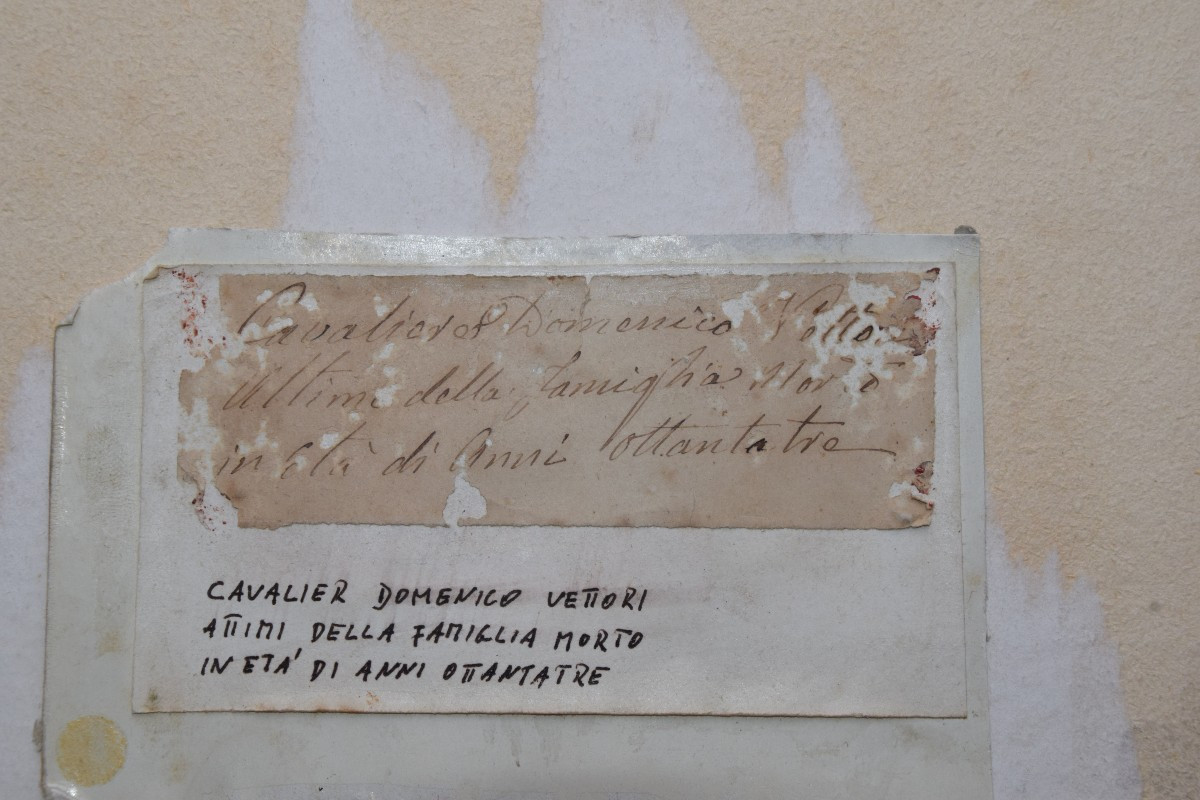 Cavalier Domenico Vetto
Ultimo della famiglia Morto
in Età di Anni ottantatre
CAVALIER DOMENICO VETTORI
ATTIMI DELLA FAMIGLIA MORTO
IN ETA' DI ANNI OTTANTATRE